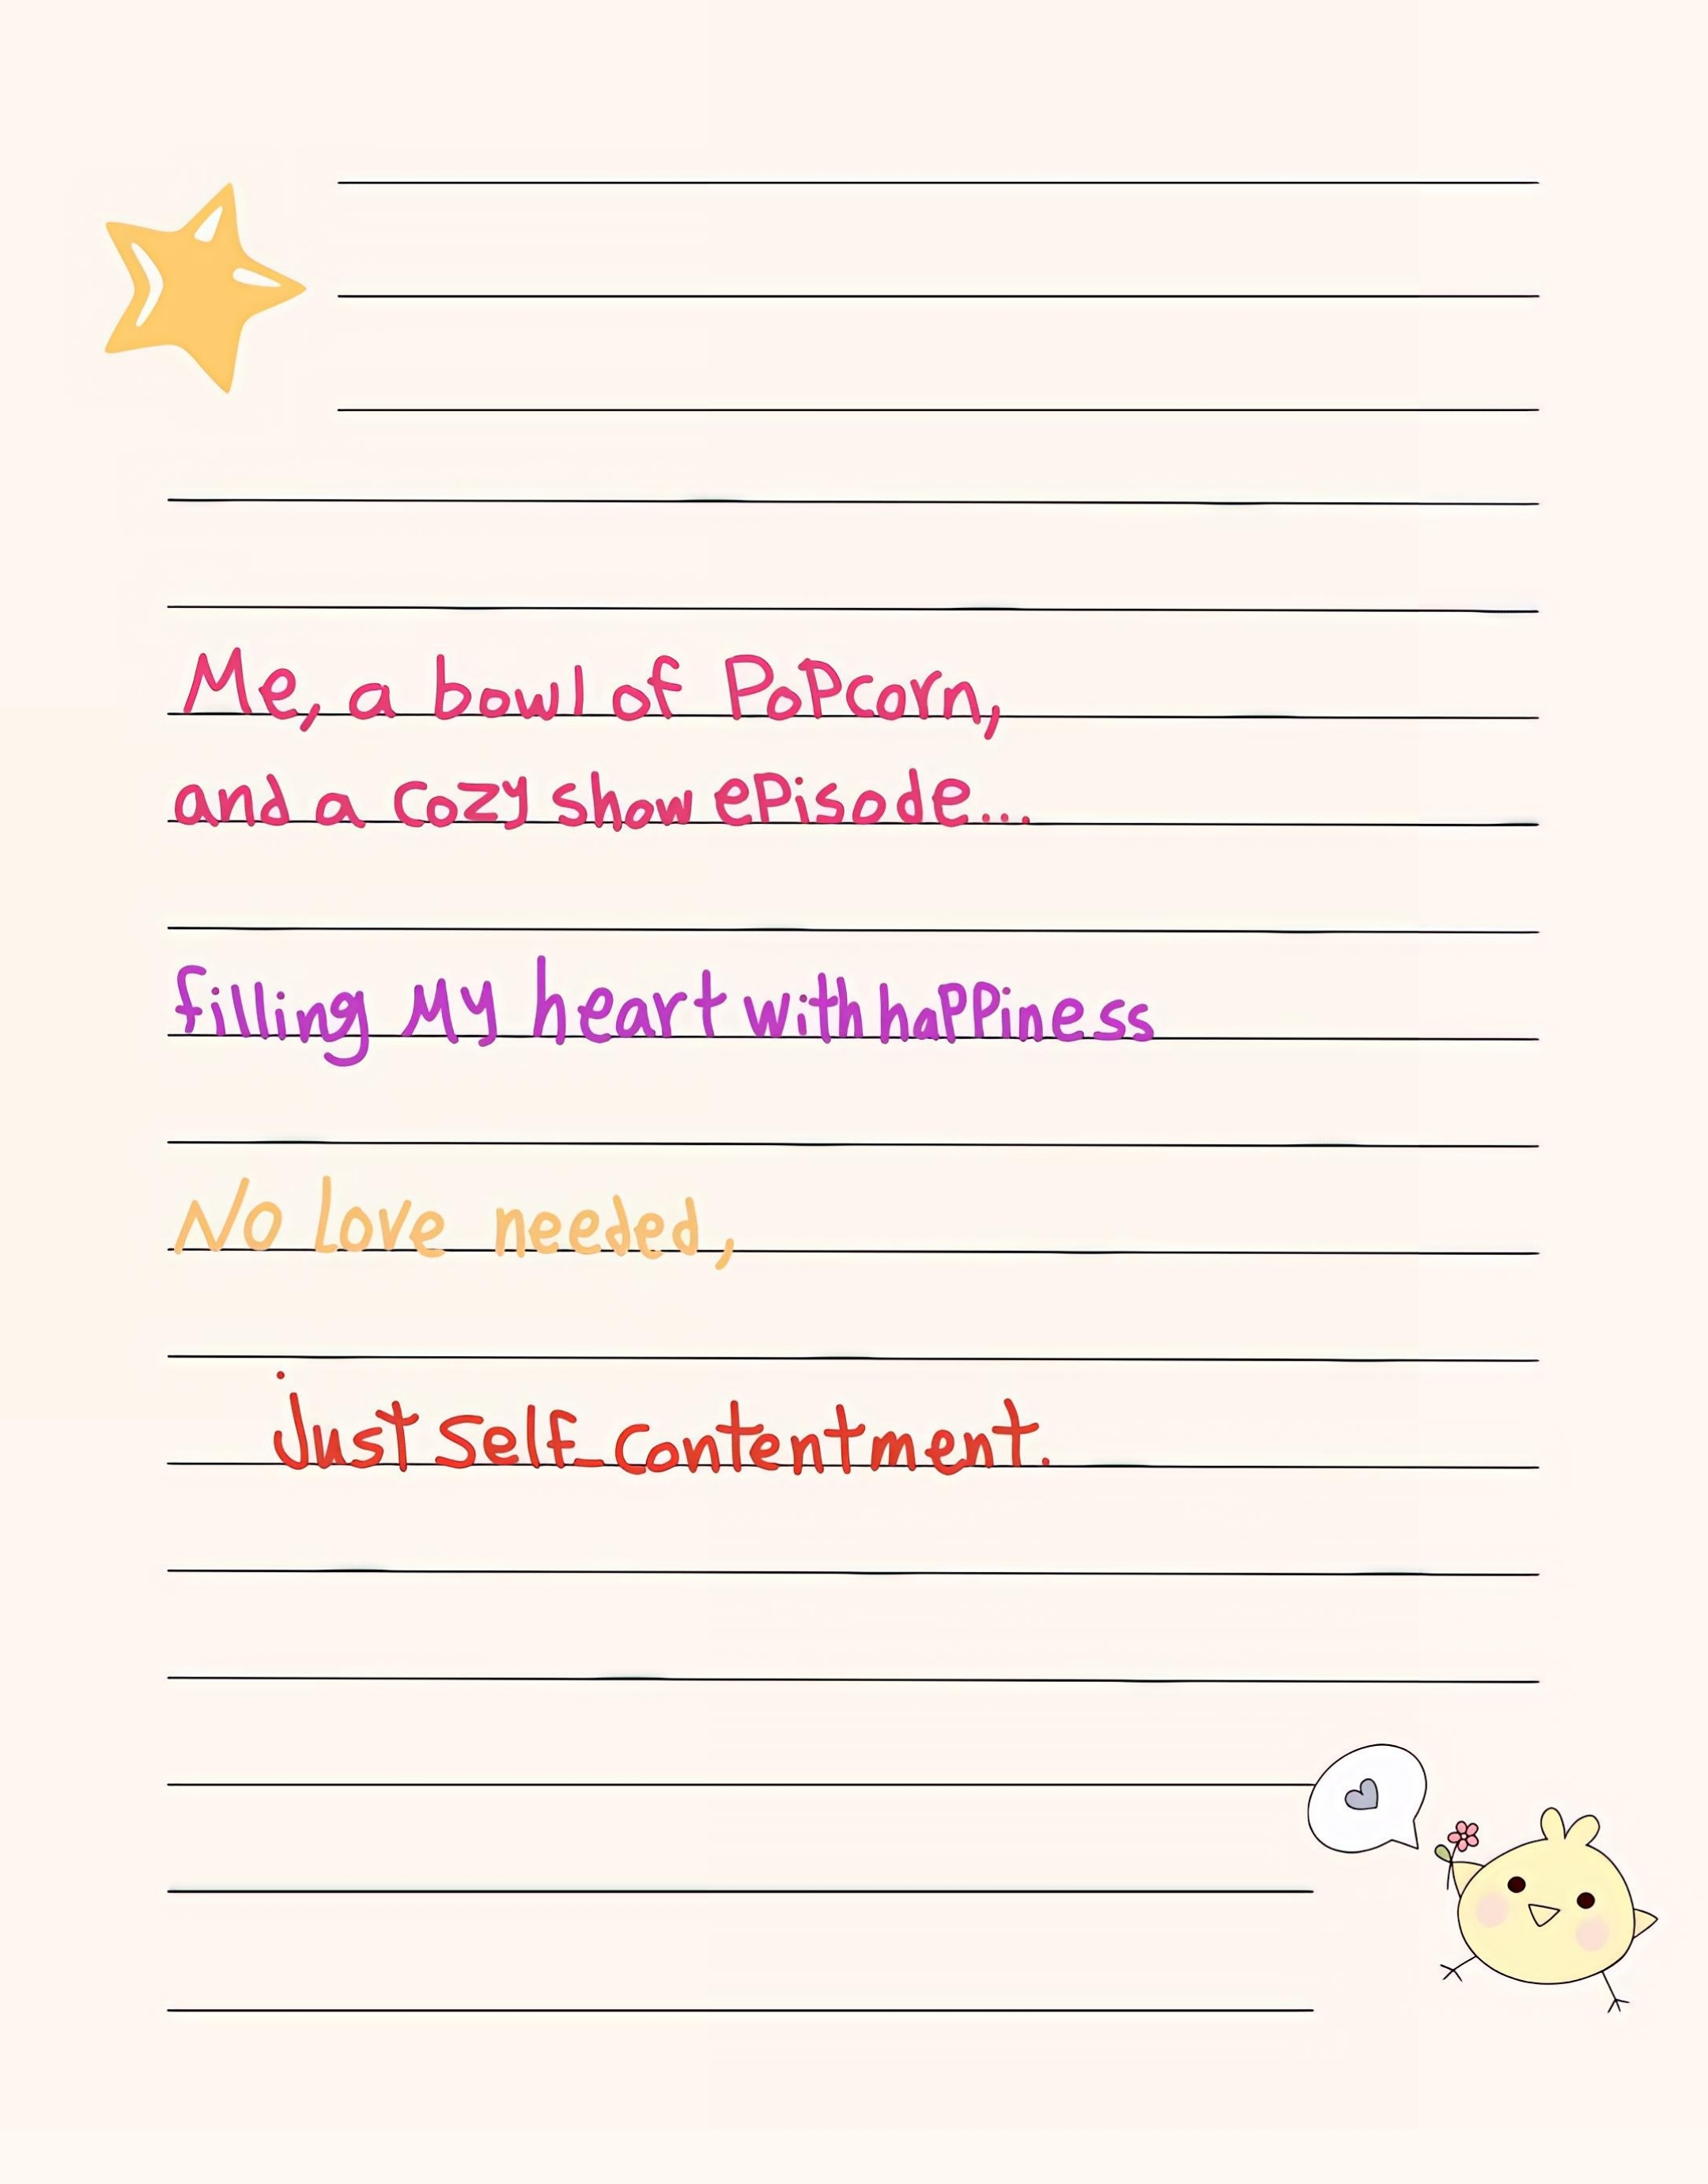 Me, a bowl of PoPcorn,
and a cozy show ePisode...
filling My heart with haPPiness
No Love needed,
just self-contentment.